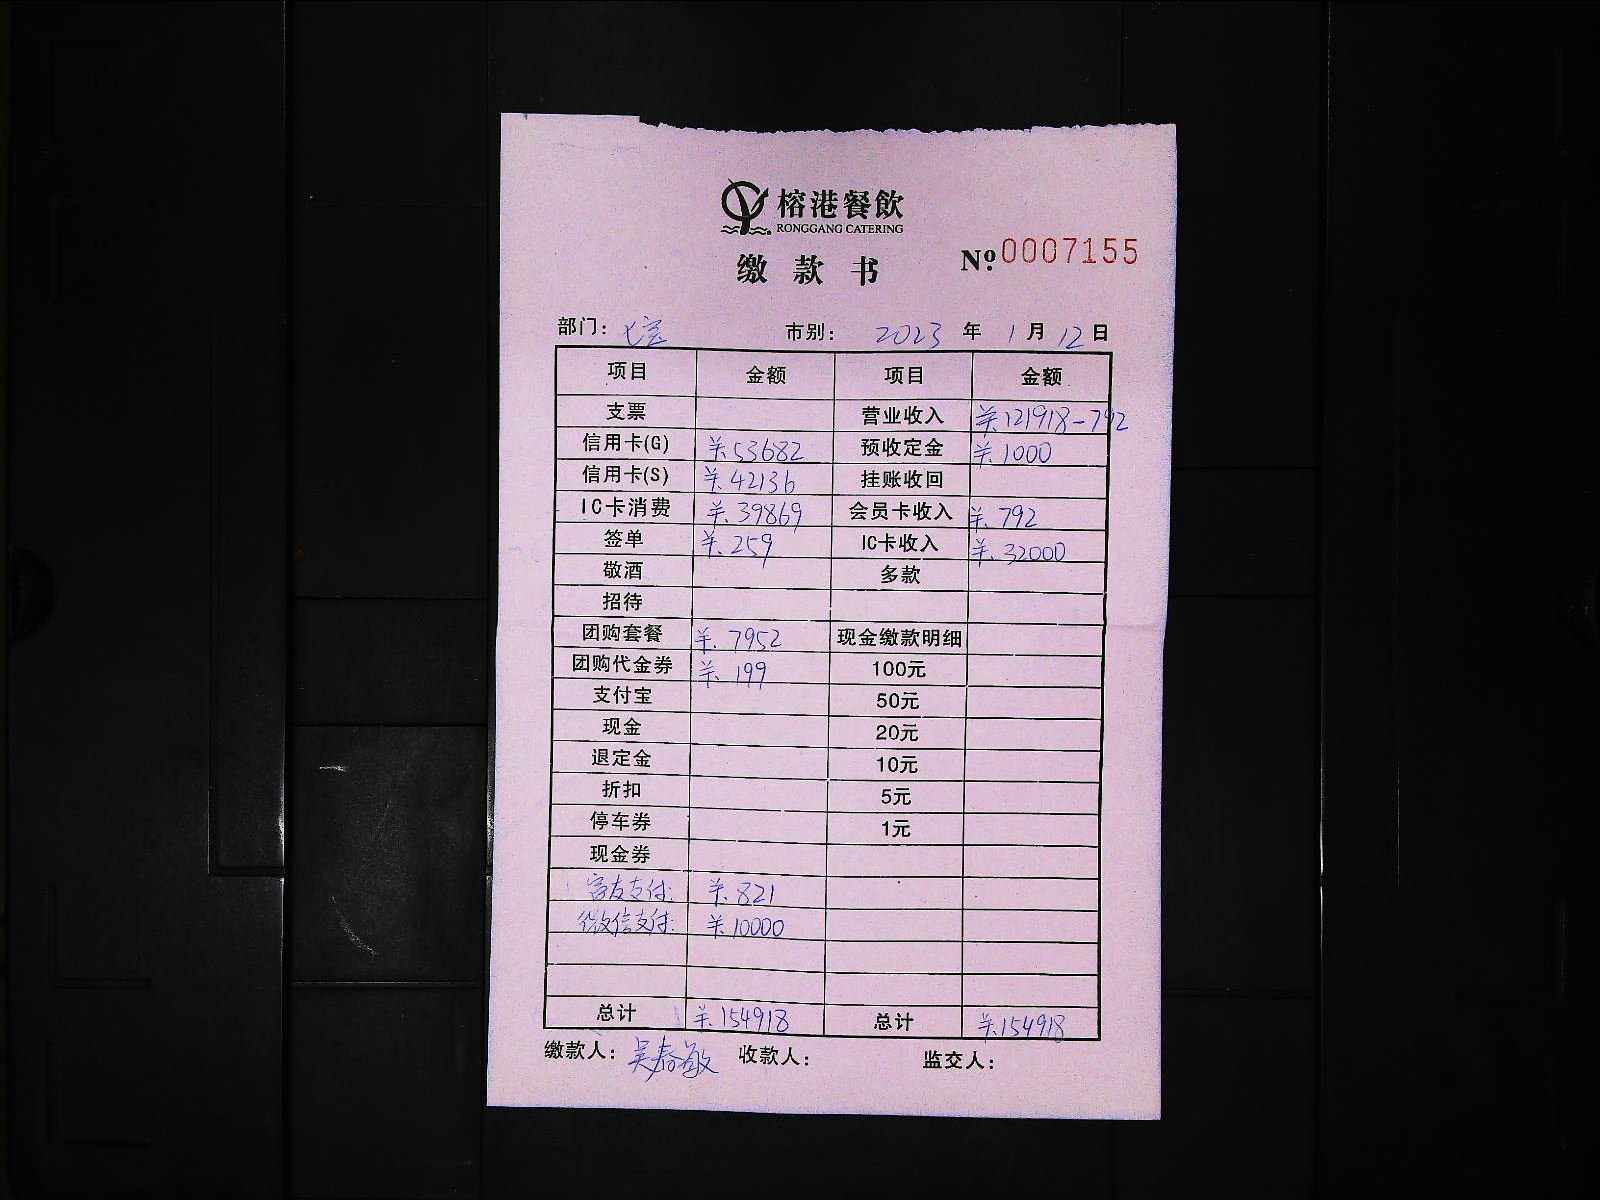 榕港餐飲
RONGGANG CATERING
缴款书 №0007155
部门： 市别： 2023 年 1 月 12 日
项目 金额 项目 金额
支票 营业收入 ¥121918-792
信用卡(G) ¥53682 预收定金 ¥1000
信用卡(S) ¥.42136 挂账收回
IC卡消费 ¥.39869 会员卡收入 ¥.792
签单 ¥.259 IC卡收入 ¥.32000
敬酒 多款
招待
团购套餐 ¥.7952 现金缴款明细
团购代金券 ¥.199 100元
支付宝 50元
现金 20元
退定金 10元
折扣 5元
停车券 1元
现金券
支付: ¥.821
微信支付: ¥10000
总计 ¥.154918 总计 ¥.154918
缴款人：吴春敏 收款人： 监交人：